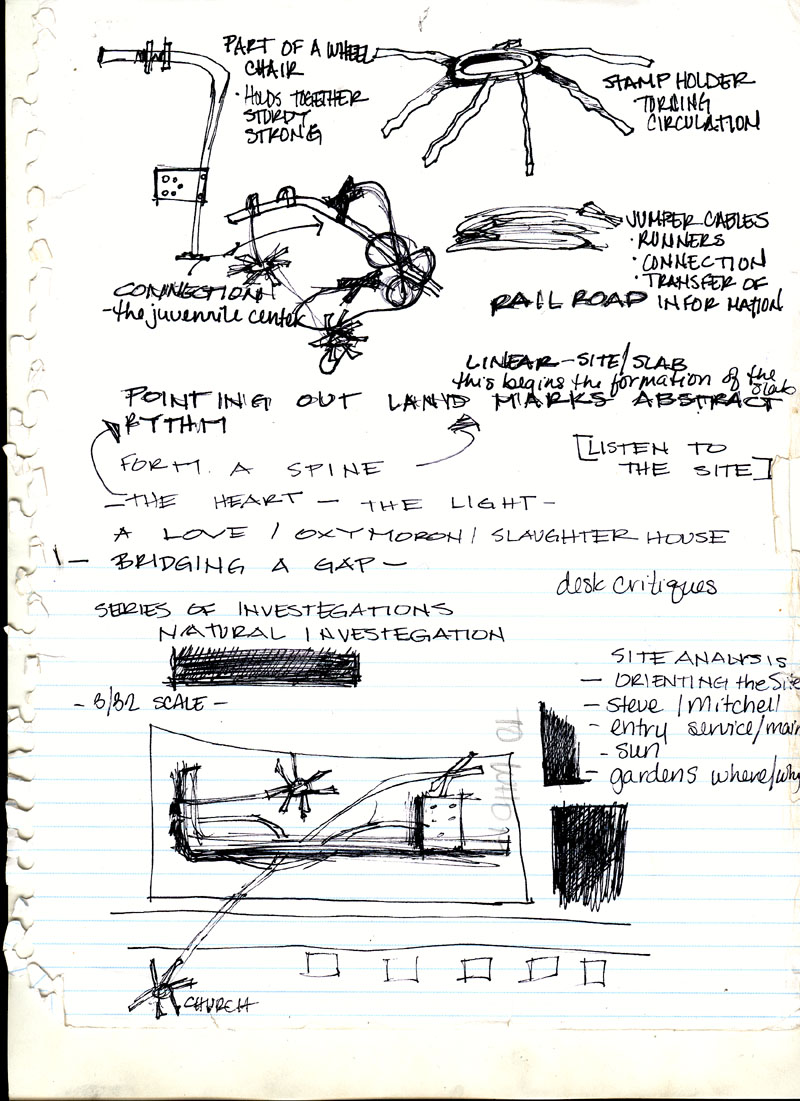 PART OF A WHEEL
CHAIR
· HOLDS TOGETHER
STURDY
STRONG
STAMP HOLDER
CIRCULATION
JUMPER CABLES
· RUNNERS
· CONNECTION
· TRANSFER OF
INFORMATION
CONNECTION
- the juvenile center
RAIL ROAD
LINEAR - SITE/SLAB
this begins the formation of the
slab
POINTING OUT LAND MARKS ABSTRACT
RYTHM
FORM A SPINE
[LISTEN TO
THE SITE]
- THE HEART - THE LIGHT -
A LOVE / OXYMORON / SLAUGHTER HOUSE
- BRIDGING A GAP -
desk critiques
SERIES OF INVESTEGATIONS
NATURAL INVESTEGATION
- 3/32 SCALE -
SITE ANALYSIS
- ORIENTING the Site
- Steve / Mitchell
- entry service/main
- sun
- gardens where/why
CHURCH